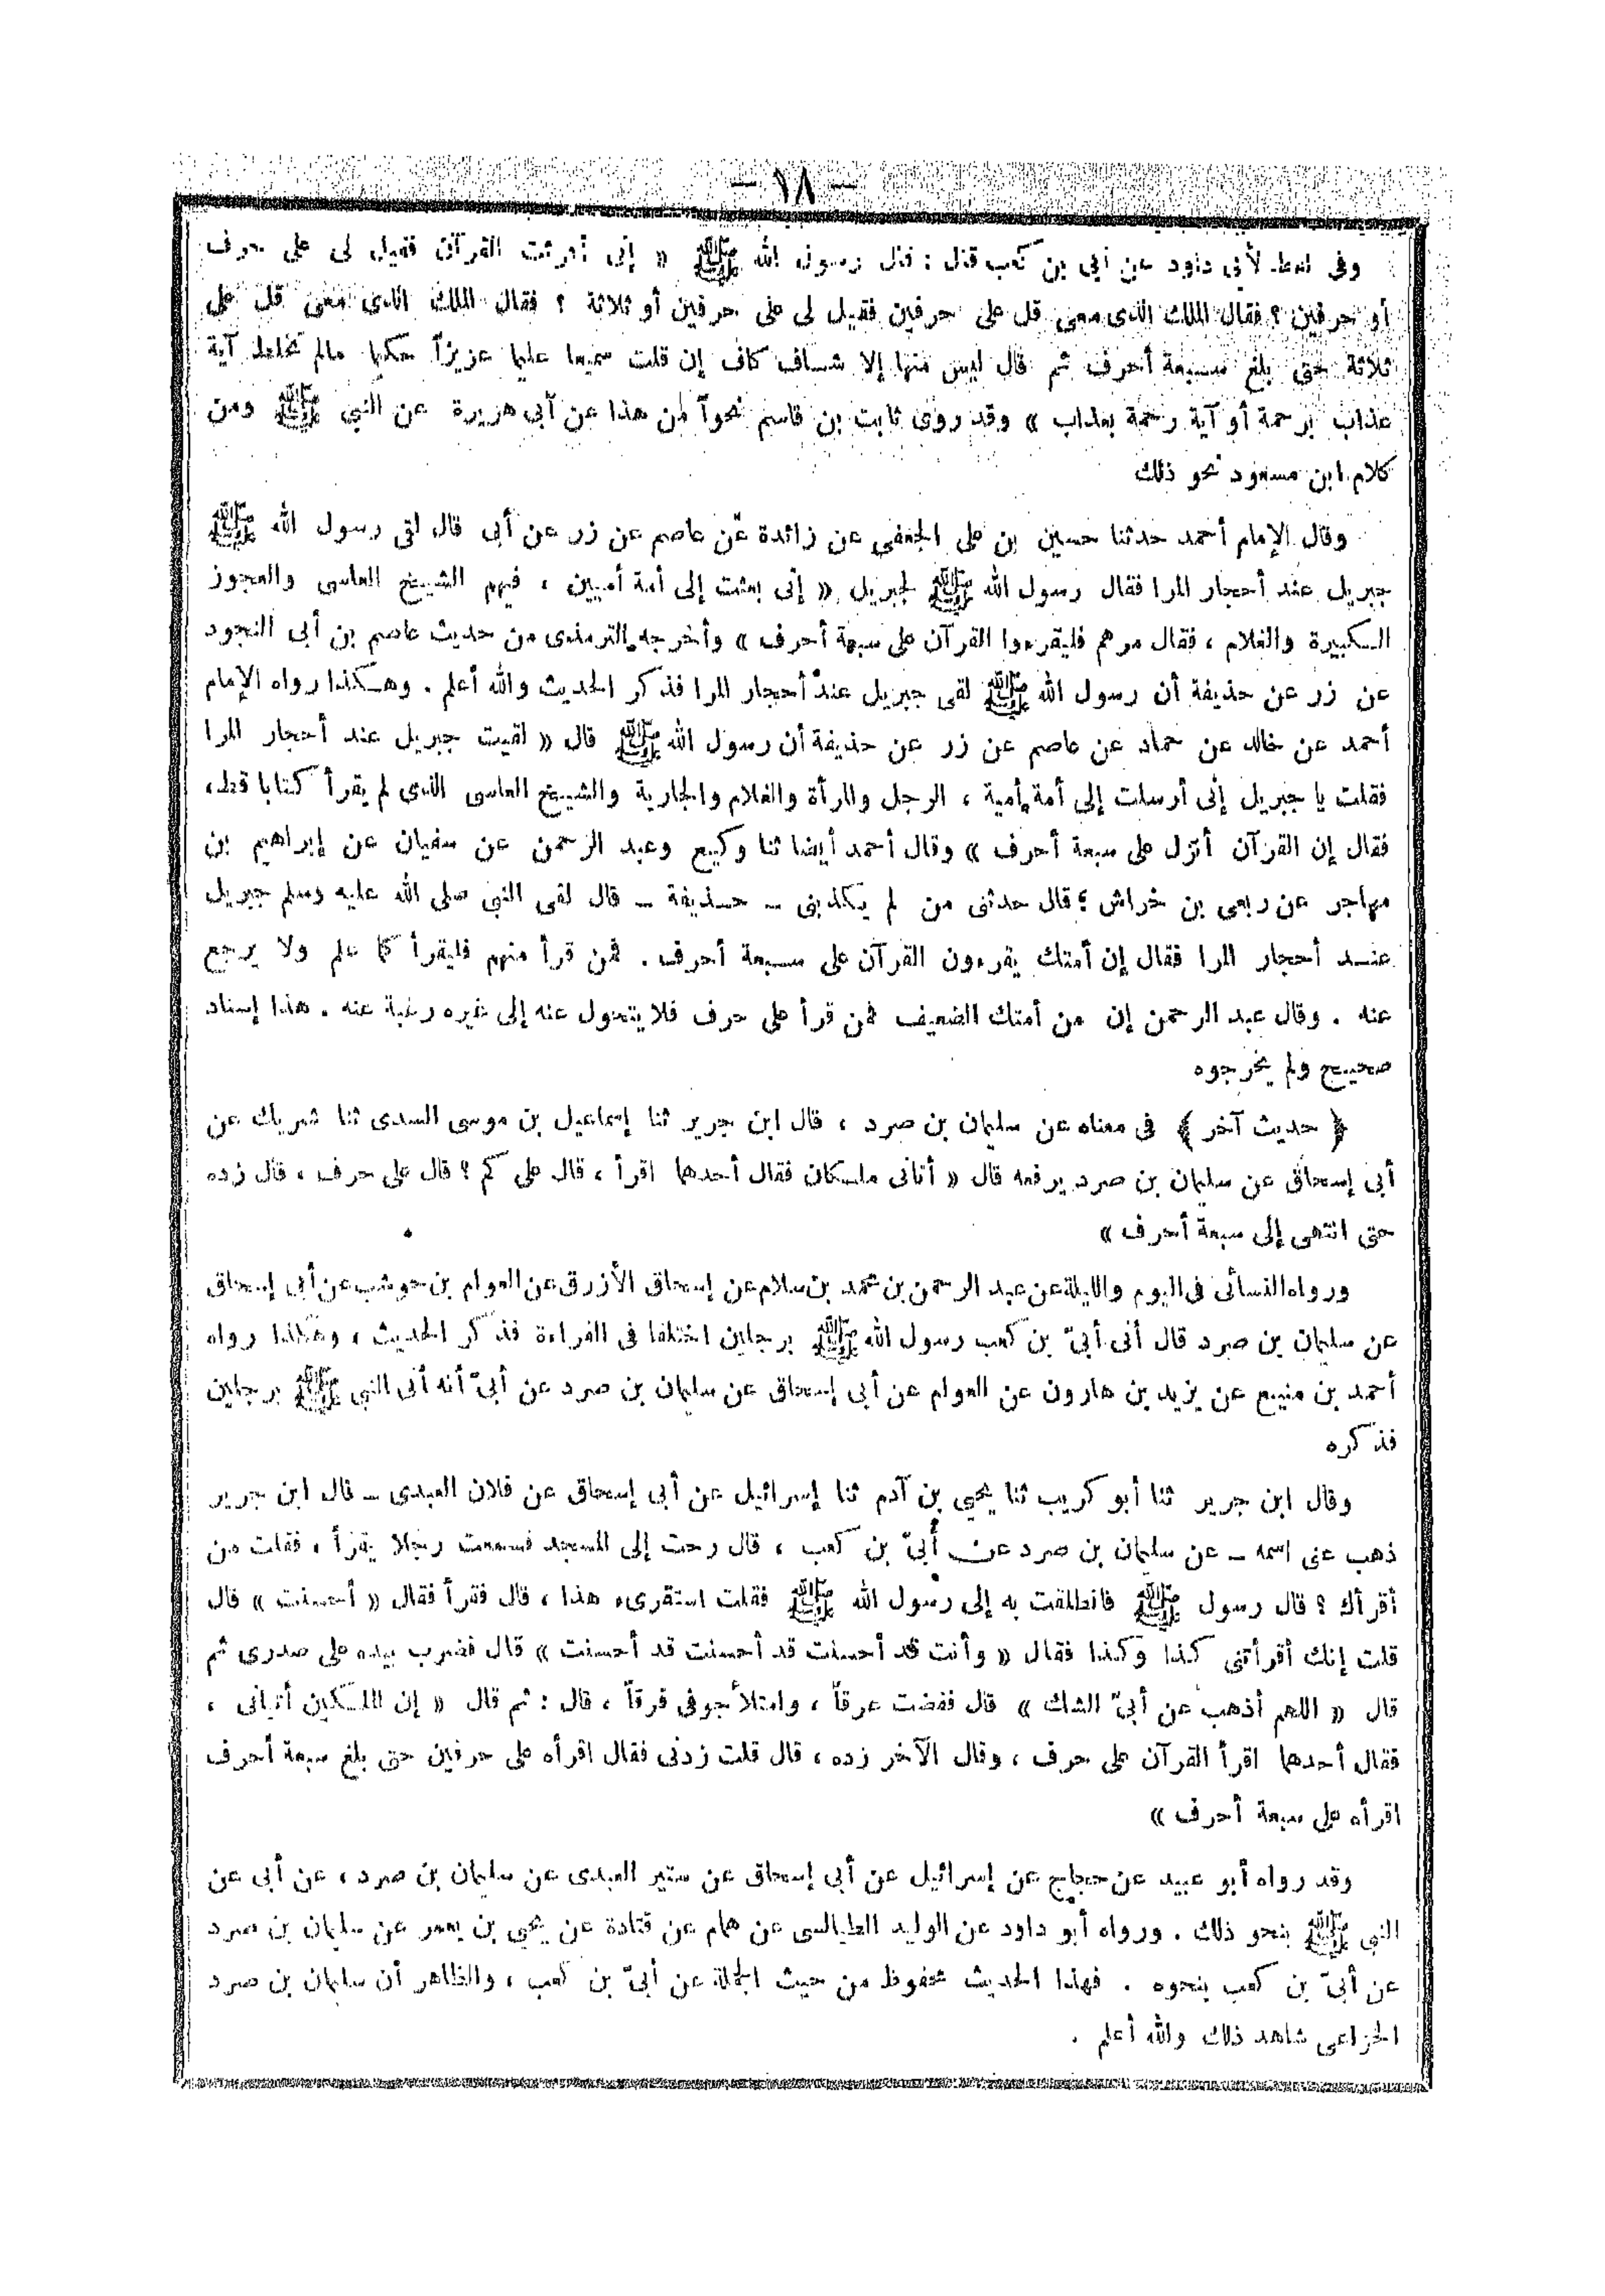 — ١٨ —
وفى لفظ لأبى داود عن أبي بن كعب قال : قال رسول الله ﷺ « إنى أقرئت القرآن فقيل لى على حرف
أو حرفين ؟ فقال الملك الذى معى قل على حرفين فقيل لى على حرفين أو ثلاثة ؟ فقال الملك الذى معى قل على
ثلاثة حتى بلغ سبعة أحرف ثم قال ليس منها إلا شاف كاف إن قلت سميعا عليما عزيزاً حكيما مالم تخلط آية
عذاب برحمة أو آية رحمة بعذاب » وقد روى ثابت بن قاسم نحواً من هذا عن أبى هريرة عن النبي ﷺ ومن
كلام ابن مسعود نحو ذلك
وقال الإمام أحمد حدثنا حسين بن على الجعفى عن زائدة عن عاصم عن زر عن أبى قال لقى رسول الله ﷺ
جبريل عند أحجار المرا فقال رسول الله ﷺ لجبريل « إنى بعثت إلى أمة أميين ، فيهم الشيخ العاسى والعجوز
الكبيرة والغلام ، فقال مرهم فليقرءوا القرآن على سبعة أحرف » وأخرجه الترمذى من حديث عاصم بن أبى النجود
عن زر عن حذيفة أن رسول الله ﷺ لقى جبريل عند أحجار المرا فذكر الحديث والله أعلم . وهكذا رواه الإمام
أحمد عن خالد عن حماد عن عاصم عن زر عن حذيفة أن رسول الله ﷺ قال « لقيت جبريل عند أحجار المرا
فقلت يا جبريل إنى أرسلت إلى أمة أمية ، الرجل والمرأة والغلام والجارية والشيخ العاسى الذى لم يقرأ كتابا قط ،
فقال إن القرآن أنزل على سبعة أحرف » وقال أحمد أيضا ثنا وكيع وعبد الرحمن عن سفيان عن إبراهيم بن
مهاجر عن ربعى بن خراش ؛ قال حدثنى من لم يكذبنى – حذيفة – قال لقى النبي صلى الله عليه وسلم جبريل
عند أحجار المرا فقال إن أمتك يقرءون القرآن على سبعة أحرف . فمن قرأ منهم فليقرأ كما علم ولا يرجع
عنه . وقال عبد الرحمن إن من أمتك الضعيف فمن قرأ على حرف فلا يتحول عنه إلى غيره رغبة عنه . هذا إسناد
صحيح ولم يخرجوه
﴿ حديث آخر ﴾ فى معناه عن سليمان بن صرد ، قال ابن جرير ثنا إسماعيل بن موسى السدى ثنا شريك عن
أبى إسحاق عن سليمان بن صرد يرفعه قال « أتانى ملكان فقال أحدهما اقرأ ، قال على كم ؟ قال على حرف ، قال زده
حتى انتهى إلى سبعة أحرف »
ورواه النسائى فى اليوم والليلة عن عبد الرحمن بن محمد بن سلام عن إسحاق الأزرق عن العوام بن حوشب عن أبى إسحاق
عن سليمان بن صرد قال أتى أبىّ بن كعب رسول الله ﷺ برجلين اختلفا فى القراءة فذكر الحديث ، وهكذا رواه
أحمد بن منيع عن يزيد بن هارون عن العوام عن أبى إسحاق عن سليمان بن صرد عن أبىّ أنه أتى النبي ﷺ برجلين
فذكره
وقال ابن جرير ثنا أبو كريب ثنا يحيى بن آدم ثنا إسرائيل عن أبى إسحاق عن فلان العبدى – قال ابن جرير
ذهب عنى اسمه – عن سليمان بن صرد عن أُبىّ بن كعب ، قال رحت إلى المسجد فسمعت رجلا يقرأ ، فقلت من
أقرأك ؟ قال رسول ﷺ فانطلقت به إلى رسول الله ﷺ فقلت استقرىء هذا ، قال فقرأ فقال « أحسنت » قال
قلت إنك أقرأتنى كذا وكذا فقال « وأنت قد أحسنت قد أحسنت قد أحسنت » قال فضرب بيده على صدرى ثم
قال « اللهم أذهب عن أبىّ الشك » قال ففضت عرقاً ، وامتلأ جوفى فرقاً ، قال : ثم قال « إن الملكين أتيانى ،
فقال أحدهما اقرأ القرآن على حرف ، وقال الآخر زده ، قال قلت زدنى فقال اقرأه على حرفين حتى بلغ سبعة أحرف
اقرأه على سبعة أحرف »
وقد رواه أبو عبيد عن حجاج عن إسرائيل عن أبى إسحاق عن ستير العبدى عن سليمان بن صرد ، عن أبى عن
النبي ﷺ بنحو ذلك . ورواه أبو داود عن الوليد الطيالسى عن همام عن قتادة عن يحيى بن يعمر عن سليمان بن صرد
عن أبىّ بن كعب بنحوه . فهذا الحديث محفوظ من حيث الجملة عن أبىّ بن كعب ، والظاهر أن سليمان بن صرد
الخزاعى شاهد ذلك والله أعلم .